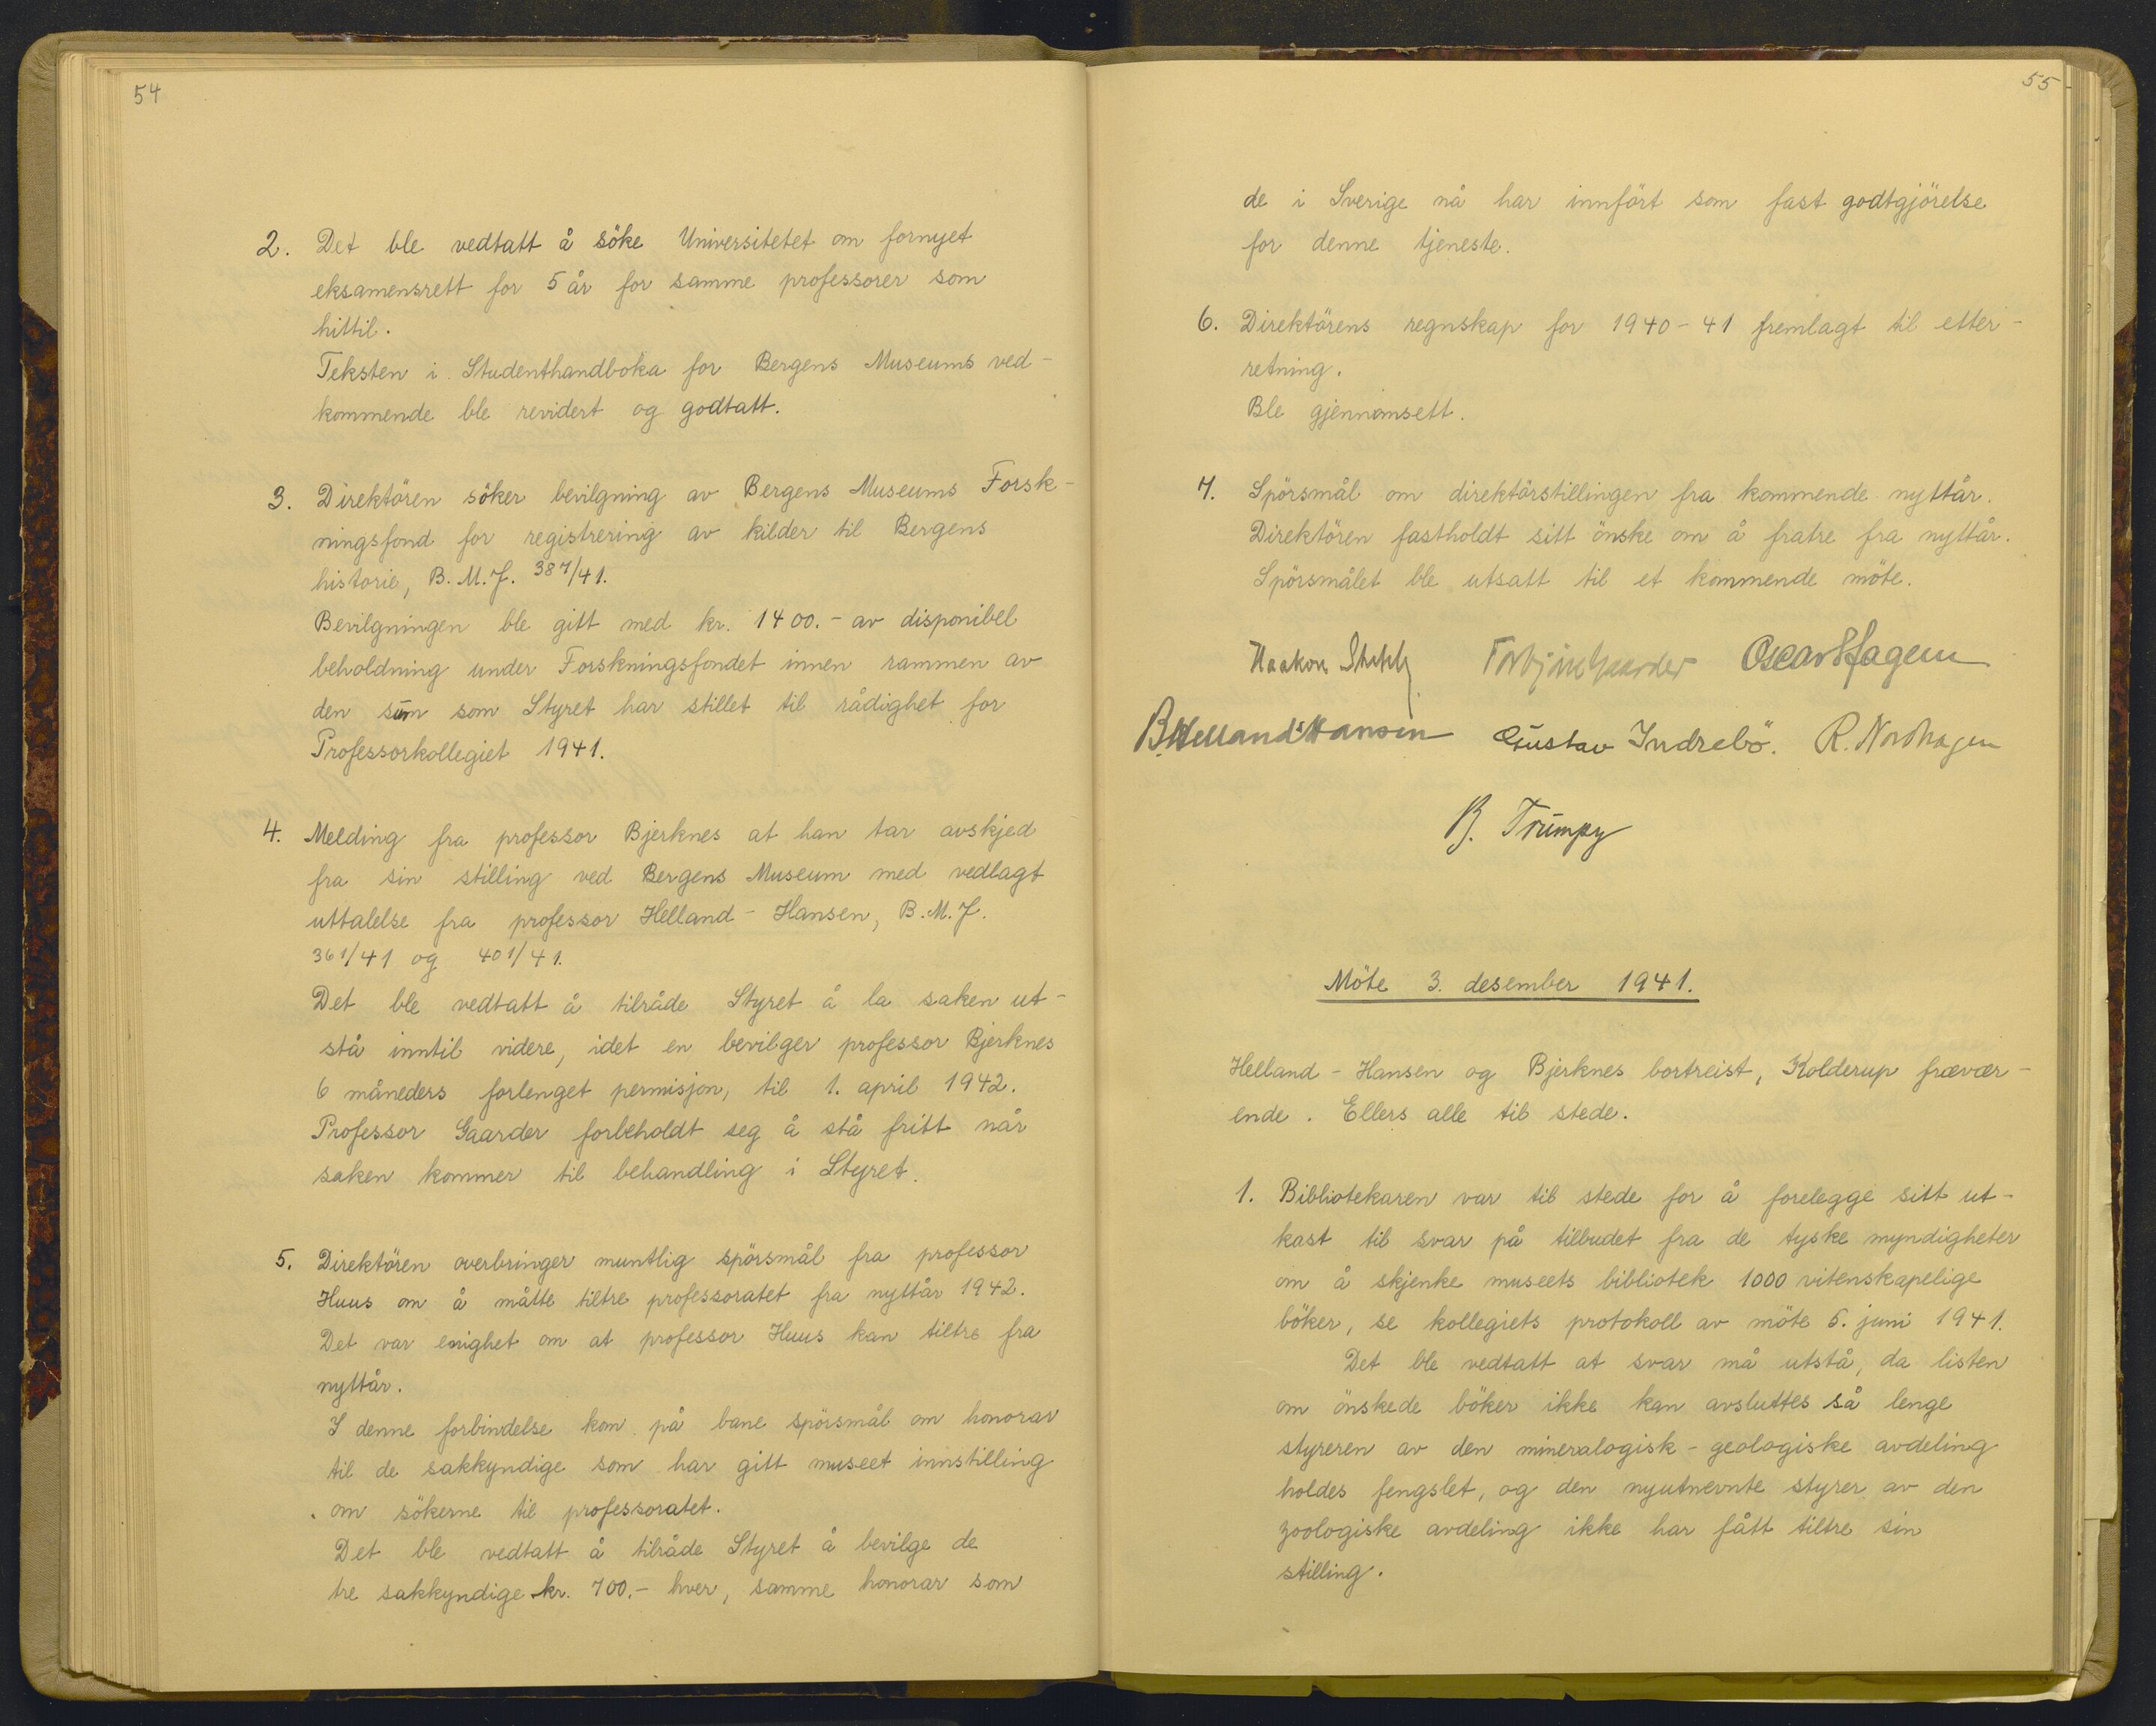 54
2. Det ble vedtatt å söke Universitetet om fornyet
eksamensrett for 5 år for samme professorer som
hittil.
Teksten i Studenthandboka for Bergens Museums ved-
kommende ble revidert og godtatt.
3. Direktören söker bevilgning av Bergens Museums Forsk-
ningsfond for registrering av kilder til Bergens
historie, B.M.J. 387/41.
Bevilgningen ble gitt med kr. 1400.- av disponibel
beholdning under Forskningsfondet innen rammen av
den sum som Styret har stillet til rådighet for
Professorkollegiet 1941.
4. Melding fra professor Bjerknes at han tar avskjed
fra sin stilling ved Bergens Museum med vedlagt
uttalelse fra professor Helland-Hansen, B.M.J.
361/41 og 401/41.
Det ble vedtatt å tilråde Styret å la saken ut-
stå inntil videre, idet en bevilger professor Bjerknes
6 måneders forlenget permisjon, til 1. april 1942.
Professor Gaarder forbeholdt seg å stå fritt når
saken kommer til behandling i Styret.
5. Direktören overbringer muntlig spörsmål fra professor
Huus om å måtte tiltre professoratet fra nyttår 1942.
Det var enighet om at professor Huus kan tiltre fra
nyttår.
I denne forbindelse kom på bane spörsmål om honorar
til de sakkyndige som har gitt museet innstilling
om sökerne til professoratet.
Det ble vedtatt å tilråde Styret å bevilge de
tre sakkyndige kr. 700.- hver, samme honorar som
55
de i Sverige nå har innfört som fast godtgjörelse
for denne tjeneste.
6. Direktörens regnskap for 1940-41 fremlagt til etter-
retning.
Ble gjennomsett.
7. Spörsmål om direktörstillingen fra kommende nyttår.
Direktören fastholdt sitt önske om å fratre fra nyttår.
Spörsmålet ble utsatt til et kommende möte.
Haakon Shetelig Torbjörn Gaarder Oscar Hagem
B. Helland-Hansen Gustav Indrebö. R. Nordhagen
B. Trumpy
Möte 3. desember 1941.
Helland-Hansen og Bjerknes bortreist, Kolderup fravær-
ende. Ellers alle til stede.
1. Bibliotekaren var til stede for å forelegge sitt ut-
kast til svar på tilbudet fra de tyske myndigheter
om å skjenke museets bibliotek 1000 vitenskapelige
böker, se kollegiets protokoll av möte 6. juni 1941.
Det ble vedtatt at svar må utstå, da listen
om önskede böker ikke kan avsluttes så lenge
styreren av den mineralogisk-geologiske avdeling
holdes fengslet, og den nyutnevnte styrer av den
zoologiske avdeling ikke har fått tiltre sin
stilling.